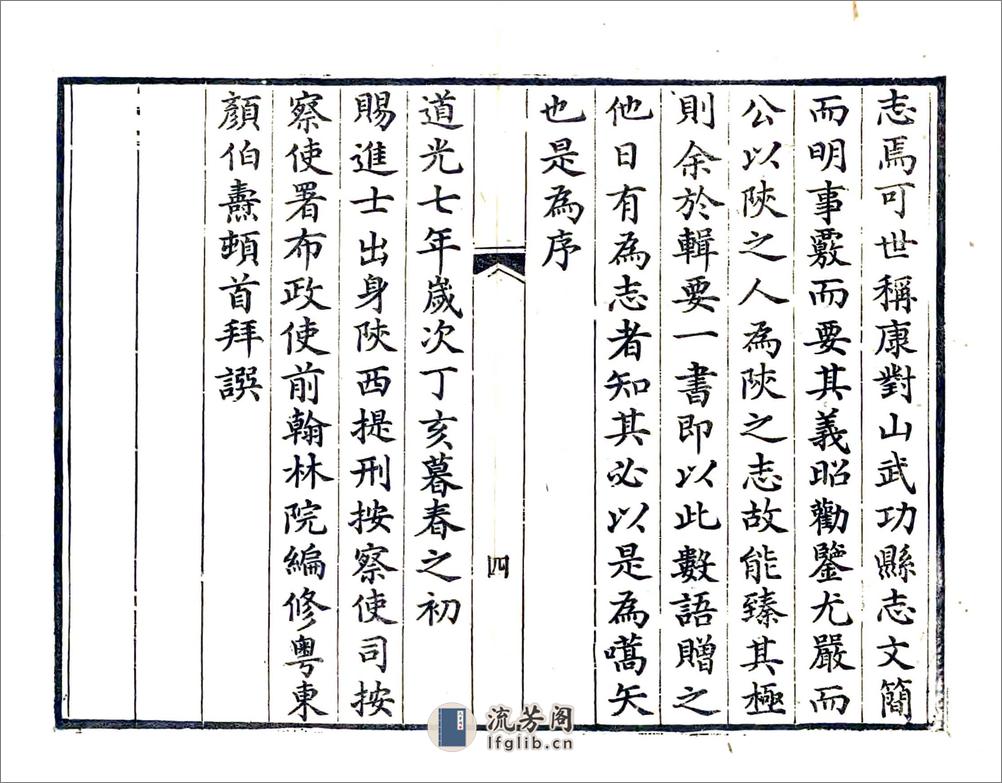 志焉可世稱康對山武功縣志文簡
而明事覈而要其義昭勸鑒尤嚴而
公以陝之人為陝之志故能臻其極
則余於輯要一書即以此數語贈之
他日有為志者知其必以是為嚆矢
也是為序
四
道光七年歲次丁亥暮春之初
賜進士出身陝西提刑按察使司按
察使署布政使前翰林院編修粵東
顏伯燾頓首拜譔
流芳阁
lfglib.cn